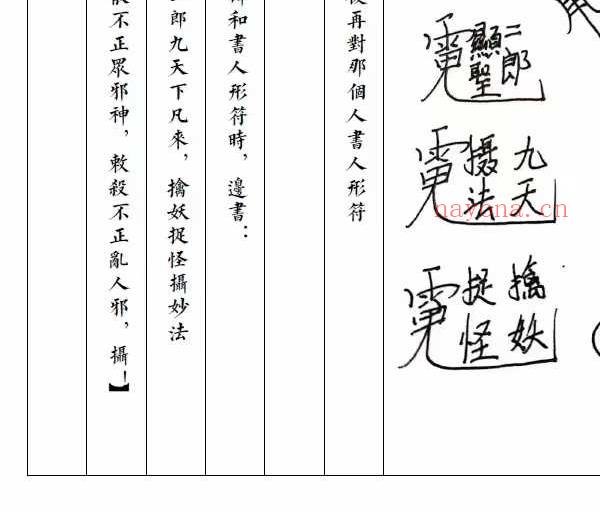 二郎
顯聖
九天
摄法
擒妖
捉怪
再對那個人書人形符
和書人形符時，邊書：
郎九天下凡來，擒妖捉怪攝妙法
不正眾邪神，敕殺不正亂人邪，攝！】
nayona.cn